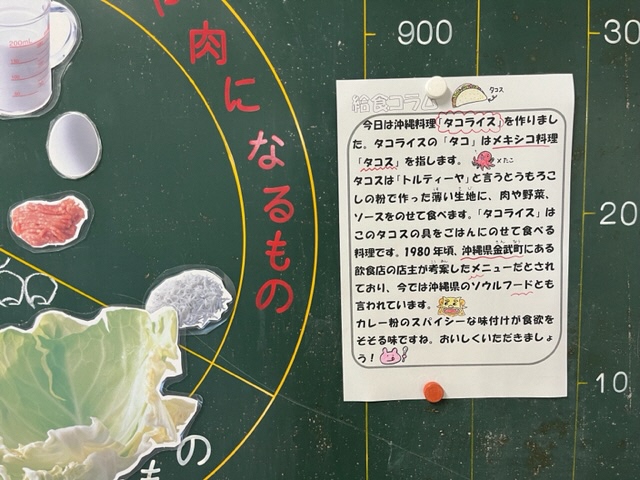 200mL
肉になるもの
の
も
900
30
20
10
給食コラム
タコス
今日は沖縄料理「タコライス」を作りまし
た。タコライスの「タコ」はメキシコ料理
「タコス」を指します。
×たこ
タコスは「トルティーヤ」と言うとうもろこ
しの粉で作った薄い生地に、肉や野菜、
ソースをのせて食べます。「タコライス」は
このタコスの具をごはんにのせて食べる
料理です。1980年頃、沖縄県金武町にある
飲食店の店主が考案したメニューだとされ
ており、今では沖縄県のソウルフードとも
言われています。
カレー粉のスパイシーな味付けが食欲を
そそる味ですね。おいしくいただきましょ
う!